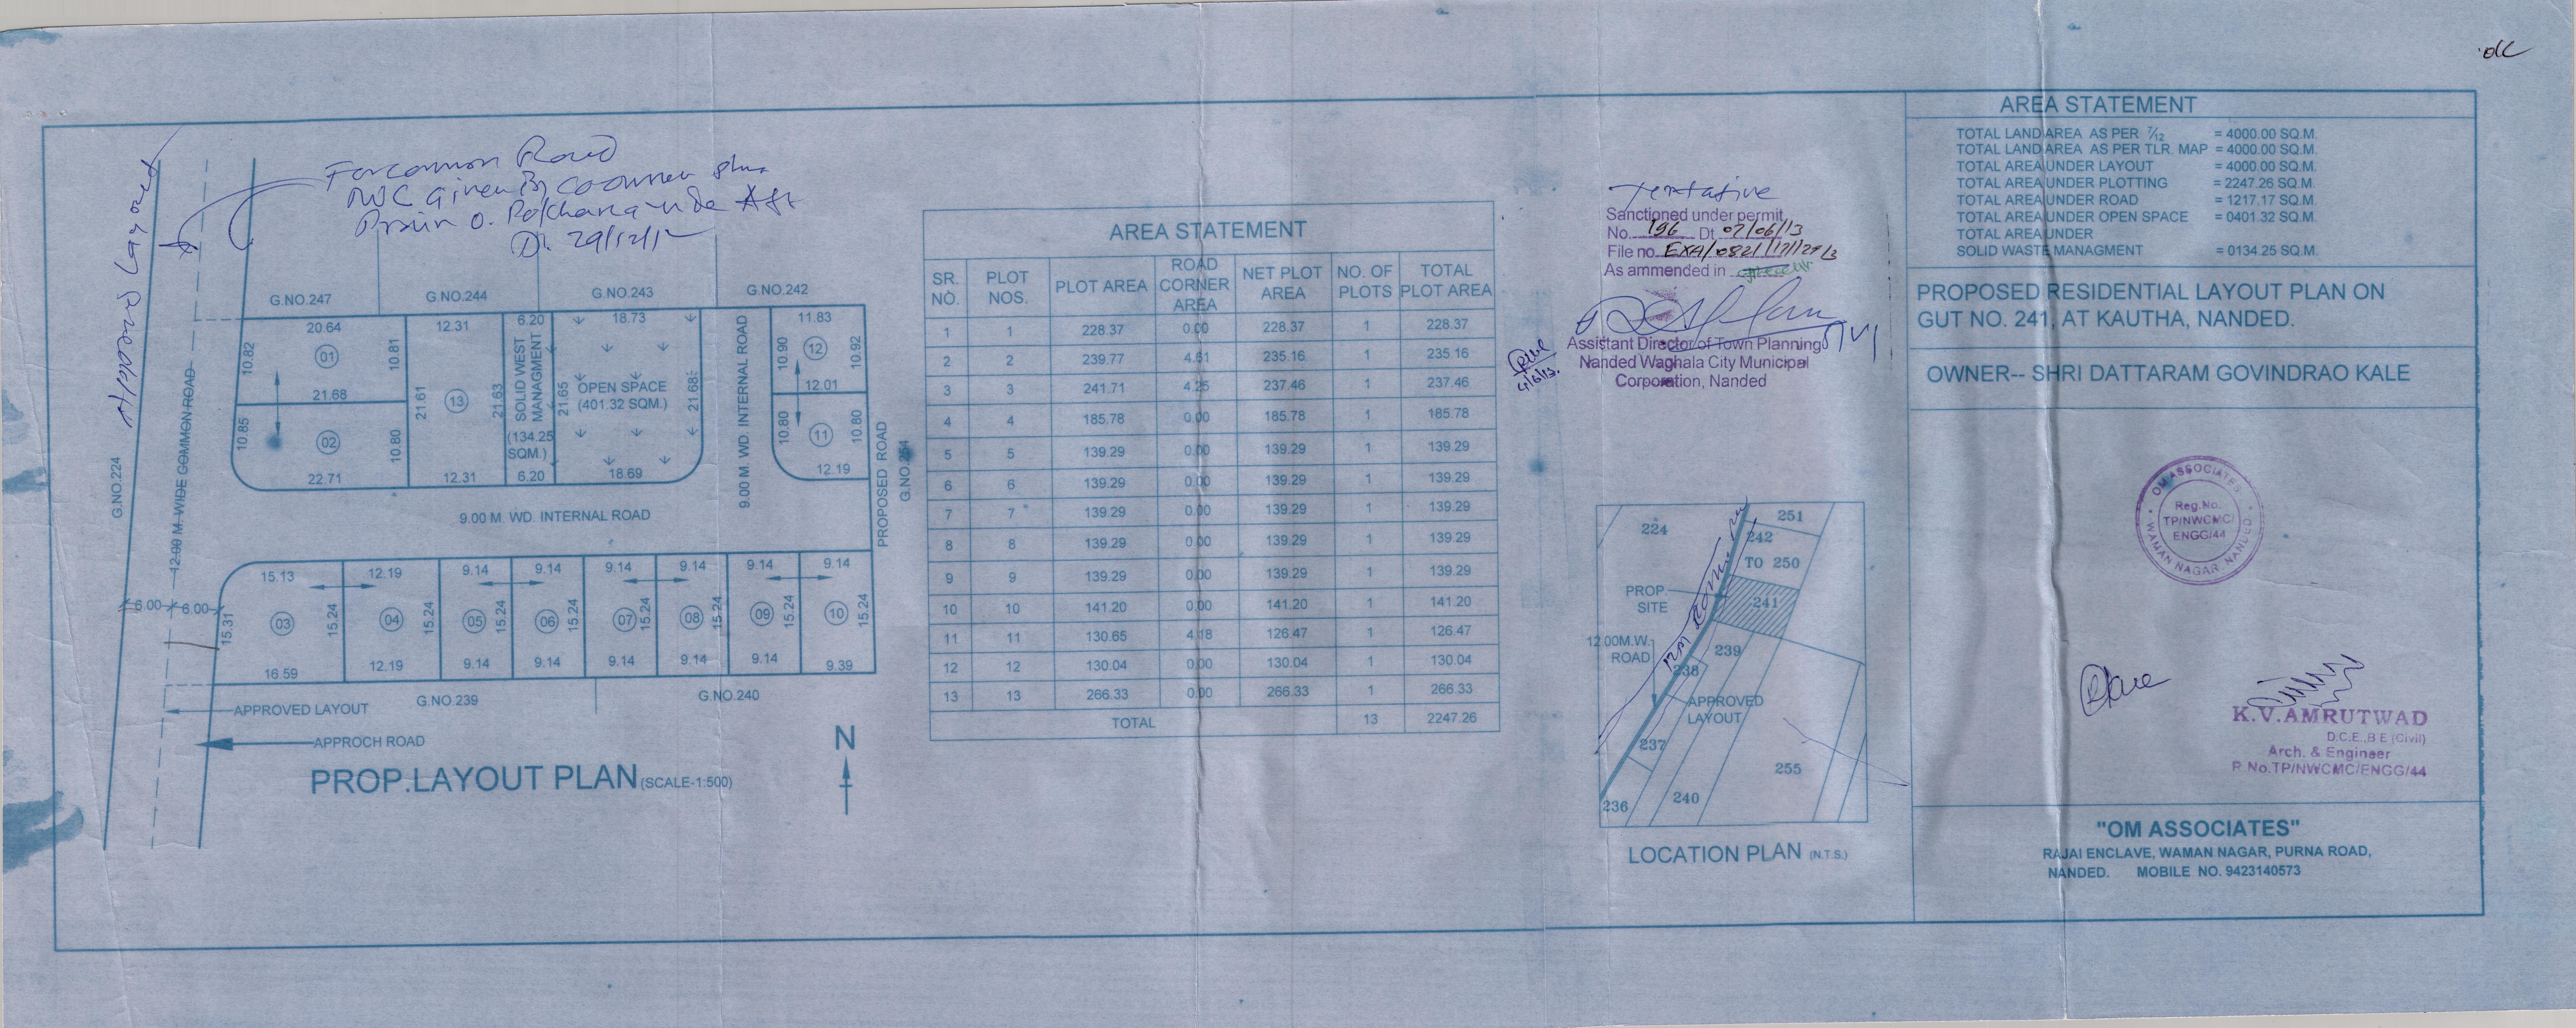 Approved Layout
For common Road
NOC Given By coowner
Dt. 29/12/12
G.NO.247
G.NO.244
G.NO.243
G.NO.242
20.64
12.31
6.20
18.73
11.83
10.82
01
10.81
21.68
10.85
02
10.80
22.71
21.61
13
21.63
12.31
SOLID WEST
MANAGMENT
(134.25
SQM.)
6.20
21.65
OPEN SPACE
(401.32 SQM.)
21.68
18.69
9.00 M. WD. INTERNAL ROAD
10.90
12
10.92
12.01
10.80
11
10.80
12.19
PROPOSED ROAD
G.NO.
G.NO.224
12.00 M. WIDE COMMON ROAD
9.00 M. WD. INTERNAL ROAD
6.00
6.00
15.13
12.19
9.14
9.14
9.14
9.14
9.14
9.14
15.31
03
15.24
04
15.24
05
15.24
06
15.24
07
15.24
08
15.24
09
15.24
10
15.24
16.59
12.19
9.14
9.14
9.14
9.14
9.14
9.39
APPROVED LAYOUT
G.NO.239
G.NO.240
APPROCH ROAD
N
PROP.LAYOUT PLAN (SCALE-1:500)
AREA STATEMENT
SR. NO. PLOT NOS. PLOT AREA ROAD CORNER AREA NET PLOT AREA NO. OF PLOTS TOTAL PLOT AREA
1 1 228.37 0.00 228.37 1 228.37
2 2 239.77 4.61 235.16 1 235.16
3 3 241.71 4.25 237.46 1 237.46
4 4 185.78 0.00 185.78 1 185.78
5 5 139.29 0.00 139.29 1 139.29
6 6 139.29 0.00 139.29 1 139.29
7 7 139.29 0.00 139.29 1 139.29
8 8 139.29 0.00 139.29 1 139.29
9 9 139.29 0.00 139.29 1 139.29
10 10 141.20 0.00 141.20 1 141.20
11 11 130.65 4.18 126.47 1 126.47
12 12 130.04 0.00 130.04 1 130.04
13 13 266.33 0.00 266.33 1 266.33
TOTAL 13 2247.26
Tentative
Sanctioned under permit
No. 196 Dt 07/06/13
File no.
As ammended in
Assistant Director of Town Planning
Nanded Waghala City Municipal
Corporation, Nanded
224
251
242
TO 250
PROP.
SITE
241
12.00M.W.
ROAD
239
238
APPROVED
LAYOUT
237
255
236
240
LOCATION PLAN (N.T.S.)
AREA STATEMENT
TOTAL LAND AREA AS PER 7/12 = 4000.00 SQ.M.
TOTAL LAND AREA AS PER TLR. MAP = 4000.00 SQ.M.
TOTAL AREA UNDER LAYOUT = 4000.00 SQ.M.
TOTAL AREA UNDER PLOTTING = 2247.26 SQ.M.
TOTAL AREA UNDER ROAD = 1217.17 SQ.M.
TOTAL AREA UNDER OPEN SPACE = 0401.32 SQ.M.
TOTAL AREA UNDER
SOLID WASTE MANAGMENT = 0134.25 SQ.M.
PROPOSED RESIDENTIAL LAYOUT PLAN ON
GUT NO. 241, AT KAUTHA, NANDED.
OWNER-- SHRI DATTARAM GOVINDRAO KALE
OM ASSOCIATES
Reg.No.
TP/NWCMC/
ENGG/44
WAMAN NAGAR, NANDED.
K.V.AMRUTWAD
D.C.E.,B E (Civil)
Arch. & Engineer
R No.TP/NWCMC/ENGG/44
"OM ASSOCIATES"
RAJAI ENCLAVE, WAMAN NAGAR, PURNA ROAD,
NANDED. MOBILE NO. 9423140573